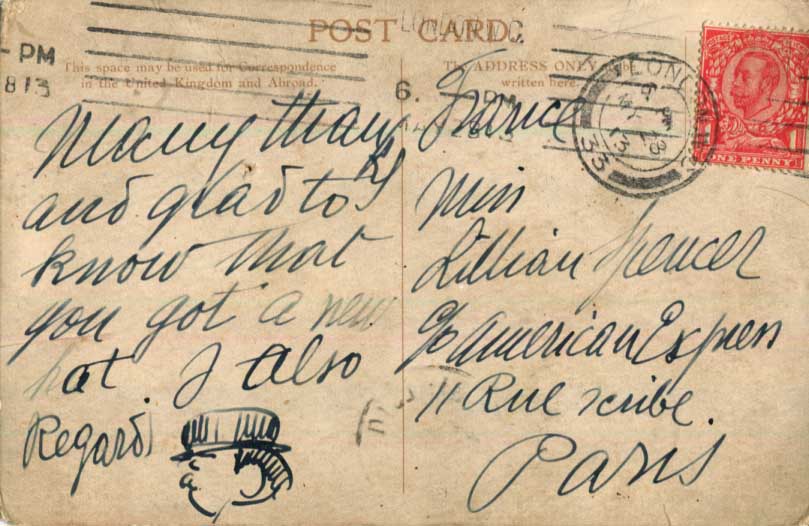 POST CARD.
This space may be used for Correspondence
in the United Kingdom and Abroad.
The ADDRESS ONLY to be
written here.
PM
813
6.
33
ONE PENNY
Many thanks
and glad to
know that
you got a new
hat. I also
Regards
France
Miss
Lillian Spencer
c/o American Express
11 Rue Scribe.
Paris